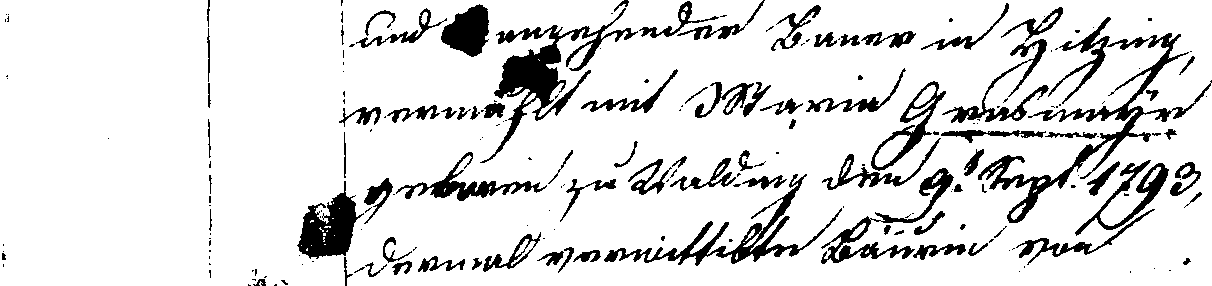 und angehender Bauer in Hitzing,
vermählt mit Maria Grasmayr
geboren zu Walding den 9t Sept. 1793,
dermal verwittibte Bäurin von